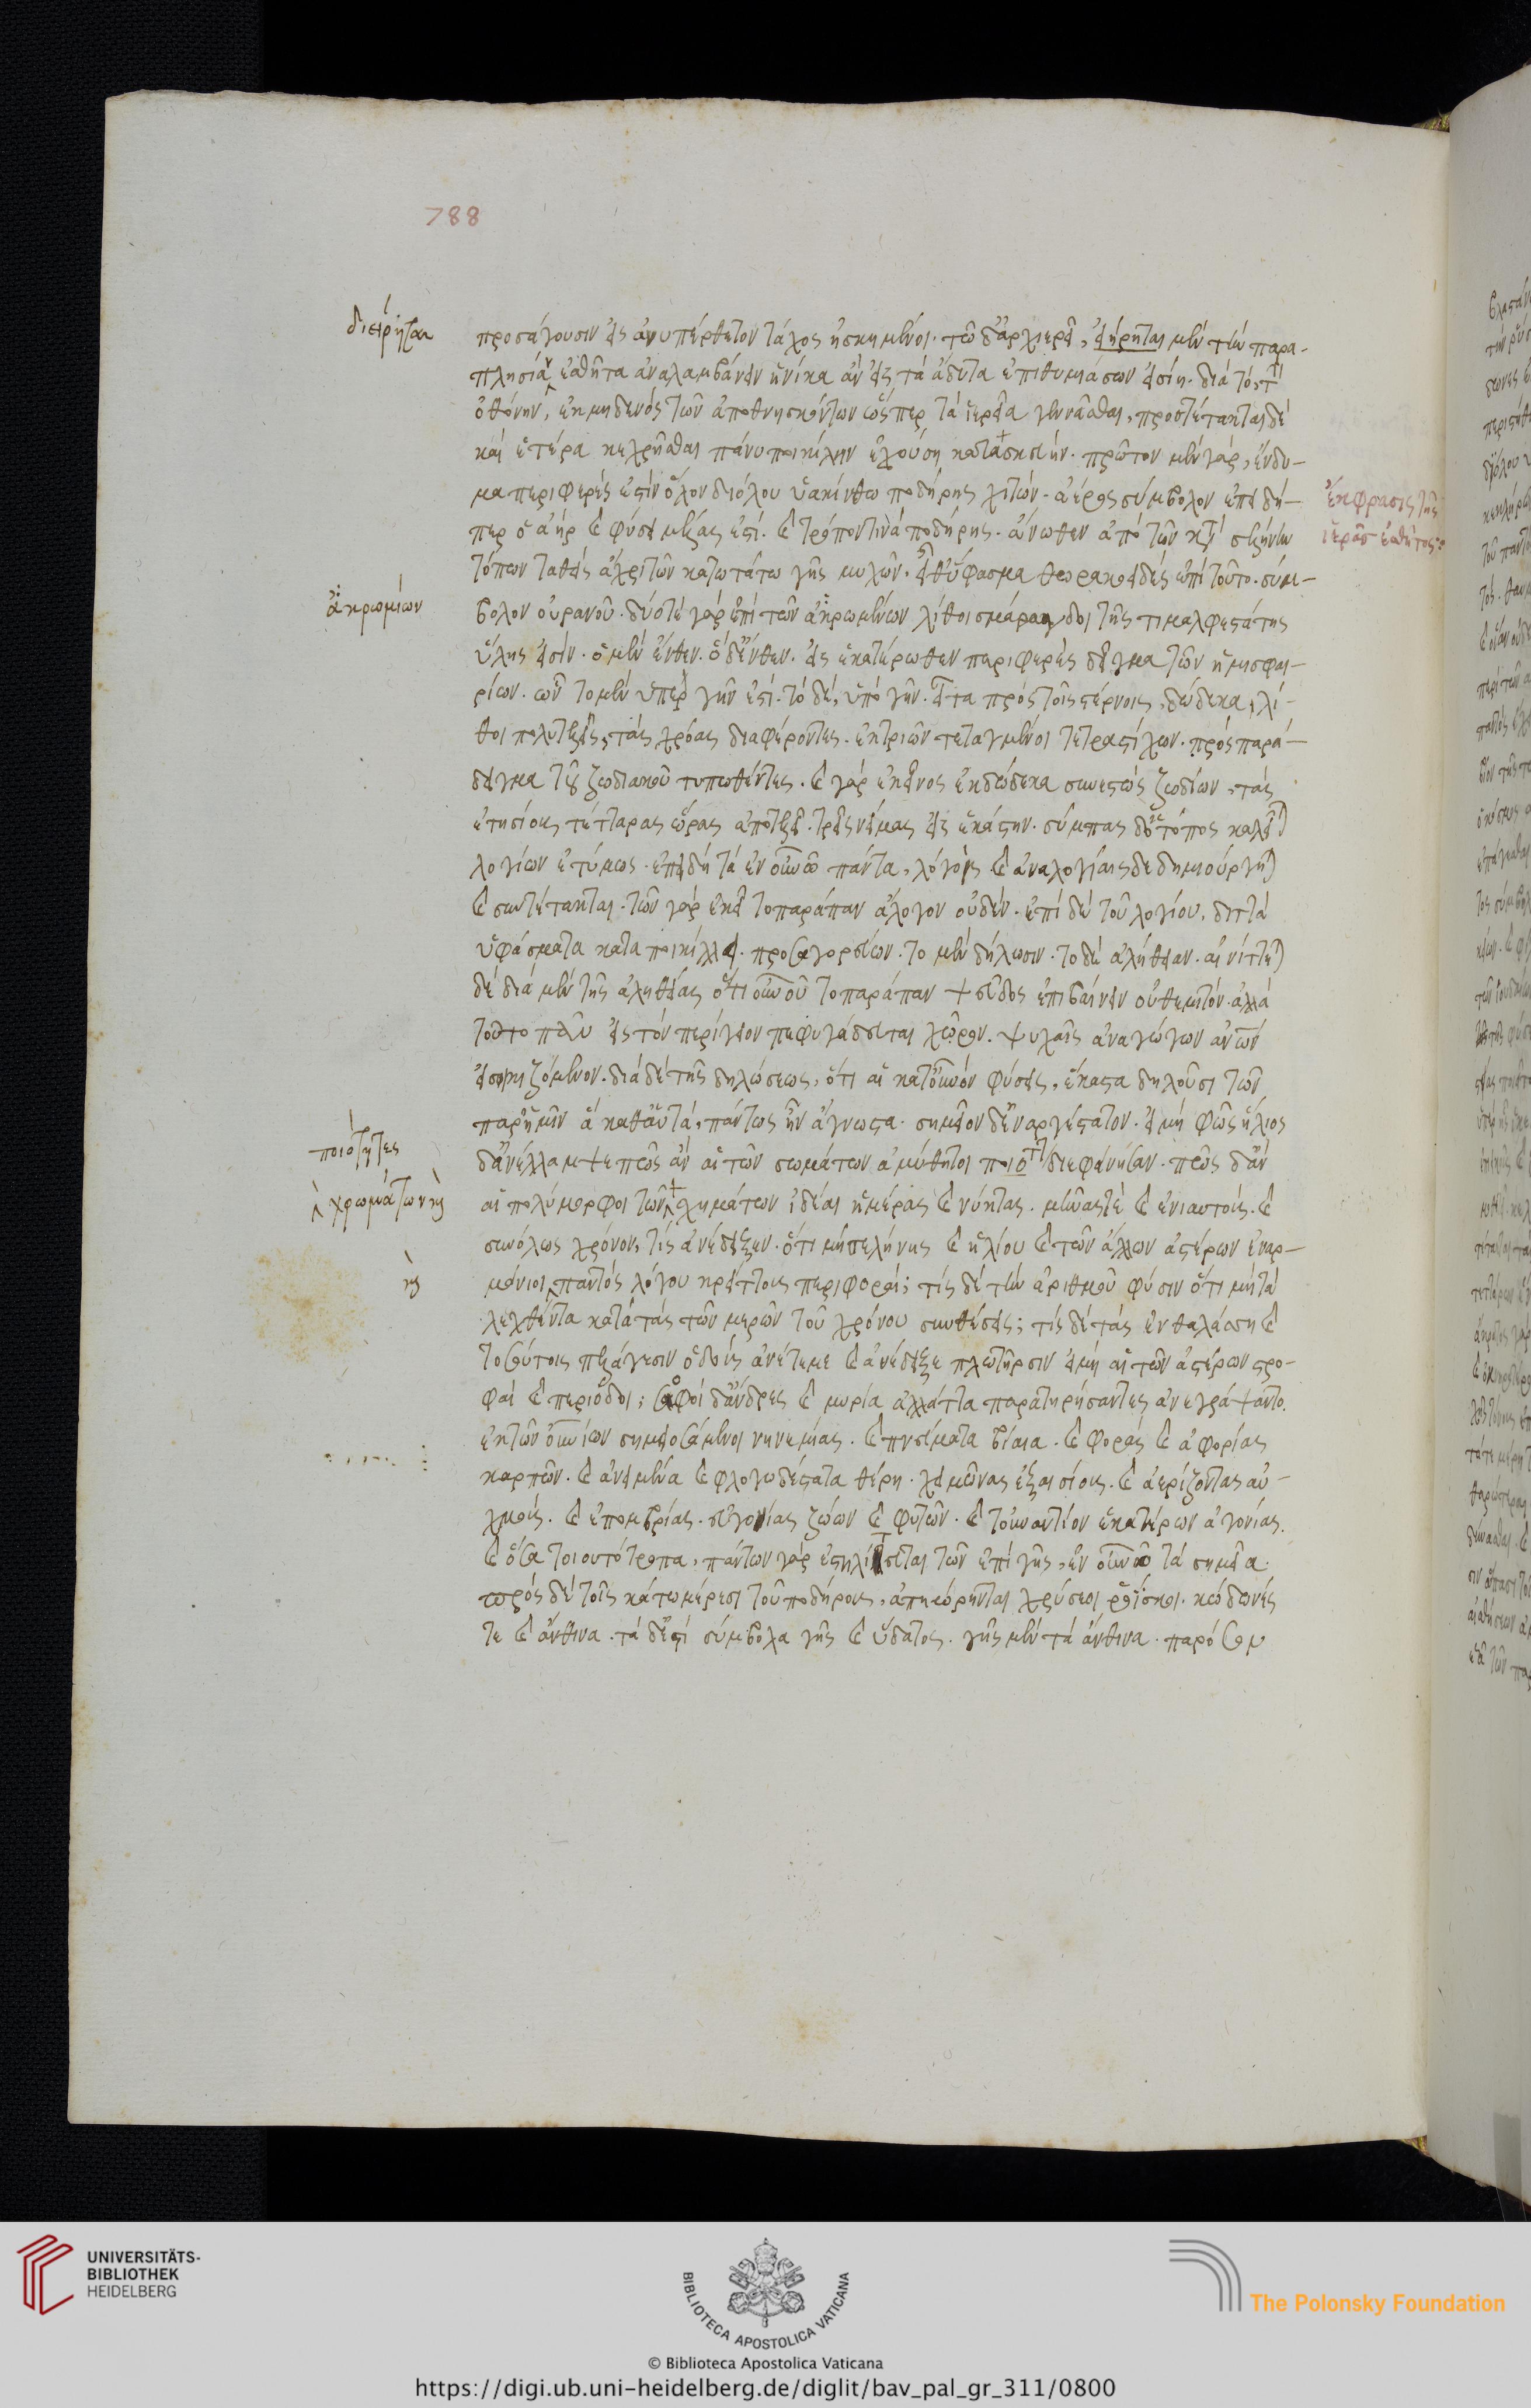 788
διείρηται
προσάγουσιν εἰς ἀνυπέρθετον τάχος ἠσκημένοι. τῶ δ' ἀρχιερεῖ, εἴρηται μὲν τὴν παρα-
πλησίαν ἐσθῆτα ἀναλαμβάνειν ἡνίκα ἂν εἰς τὰ ἄδυτα ἐπιθυμιάσων εἰσίῃ. διὰ τὸ τὴν
ὀθόνην, ἐκ μηδενὸς τῶν ἀποθνησκόντων ὥσπερ τὰ ἱερεῖα γεννᾶσθαι, προστέτακται δὲ
καὶ ἑτέρα κεχρῆσθαι πάνυ ποικίλην ἐχούση κατασκευήν. πρῶτον μὲν γὰρ, ἔνδυ-
μα περιφερές ἐστιν ὅλον διόλου ὑακίνθω ποδήρης χιτών. ἀέρος σύμβολον ἐπειδή-
περ ὁ ἀὴρ καὶ φύσει μέλας ἐστί. καὶ τρόπον τινὰ ποδήρης. ἄνωθεν ἀπὸ τῶν κατὰ σελήνην
τόπων ταθεὶς ἄχρι τῶν κατωτάτω γῆς μυχῶν. εἶθ' ὕφασμα θωρακοειδὲς ἐπὶ τοῦτο. σύμ-
βολον οὐρανοῦ. δύο τε γὰρ ἐπὶ τῶν ἀκρωμένων λίθοι σμάραγδοι τῆς τιμαλφεστάτης
ὕλης εἰσίν. ὁ μὲν ἔνθεν. ὁ δ' ἔνθεν. εἷς ἑκατέρωθεν περιφερὲς δεῖγμα τῶν ἡμισφαι-
ρίων. ὧν τὸ μὲν ὑπὲρ γῆν ἐστί. τὸ δὲ, ὑπὸ γῆν. εἶτα πρὸς τοῖς στέρνοις, δώδεκα, λί-
θοι πολυτελεῖς, τὰς χρόας διαφέροντες. ἐκ τριῶν τεταγμένοι τετραστίχων. πρὸς παρά-
δειγμα τοῦ ζωδιακοῦ τυπωθέντες. καὶ γὰρ ἐκεῖνος ἐκ δώδεκα συνεστὼς ζωδίων, τὰς
ἐτησίους τέτταρας ὥρας ἀποτελεῖ. τρεῖς νείμας εἰς ἑκάστην. σύμπας δ' ὁ τόπος καλεῖται
λογίων ἐτύμως. ἐπειδὴ τὰ ἐν οὐρανῶ πάντα, λόγοις καὶ ἀναλογίαις δεδημιούργηται
καὶ συντέτακται. τῶν γὰρ ἐκεῖ τοπαράπαν ἄλογον οὐδέν. ἐπὶ δὲ τοῦ λογίου, διττὰ
ὑφάσματα καταποικίλλει. προσαγορεύων. τὸ μὲν δήλωσιν. τὸ δὲ ἀλήθειαν. αἰνίττεται
δὲ διὰ μὲν τῆς ἀληθείας ὅτι οὐρανοῦ τοπαράπαν ψεῦδος ἐπιβαίνειν οὐ θεμιτόν. ἀλλὰ
τοῦτο πᾶν εἰς τὸν περίγειον πεφυγάδευται χῶρον. ψυχαῖς ἀναγώγων ἀνθρώπων
εἰσοικιζόμενον. διὰ δὲ τῆς δηλώσεως, ὅτι αἱ κατ' οὐρανὸν φύσεις, ἕκαστα δηλοῦσι τῶν
παρ' ἡμῖν ἃ καθ' αὑτὰ, πάντως ἦν ἄγνωστα. σημεῖον δ' ἐναργέστατον. εἰ μὴ φῶς ἥλιος
δ' ἀνέλλαμψε πῶς ἂν αἱ τῶν σωμάτων ἀμύθητοι ποιότητες διεφάνησαν. πῶς δ' ἂν
αἱ πολύμορφοι τῶν σχημάτων ἰδέαι ἡμέρας καὶ νύκτας. μῆνάς τε καὶ ἐνιαυτούς. καὶ
συνόλως χρόνον, τίς ἀνέδειξεν. ὅτι μὴ σελήνης καὶ ἡλίου καὶ τῶν ἄλλων ἀστέρων ἐναρ-
μόνιοι παντὸς λόγου κρείττους περιφοραί; τίς δὲ τὴν ἀριθμοῦ φύσιν ὅτι μὴ τὰ
λεχθέντα κατὰ τὰς τῶν μερῶν τοῦ χρόνου συνθέσεις; τίς δὲ τὰς ἐν θαλάσση καὶ
τοσούτοις πελάγεσιν ὁδοὺς ἀνέτεμε καὶ ἀνέδειξε πλωτῆρσιν εἰ μὴ αἱ τῶν ἀστέρων στρο-
φαὶ καὶ περίοδοι; σοφοὶ δ' ἄνδρες καὶ μυρία ἀλλάττα παρατηρήσαντες ἀνεγράψαντο.
ἐκ τῶν οὐρανίων σημειοσάμενοι νηνεμίας. καὶ πνεύματα βίαια. καὶ φορὰς καὶ ἀφορίας
καρπῶν. καὶ ἀνειμένα καὶ φλογωδέστατα θέρη. χειμῶνας ἐξαισίους. καὶ ἀερίζοντας αὐ-
χμούς. καὶ ἐπομβρίας. εὐγονίας ζώων καὶ φυτῶν. καὶ τοὐναντίον ἑκατέρων ἀγονίας.
καὶ ὅσα τοιουτότροπα, πάντων γὰρ ἐστηλίτευται τῶν ἐπὶ γῆς, ἐν οὐρανῶ τὰ σημεῖα.
πρὸς δὲ τοῖς κάτω μέρεσι τοῦ ποδήρους, ἀπηώρηνται χρύσεοι ῥοΐσκοι. κώδωνές
τε καὶ ἄνθινα. τὰ δ' ἐστὶ σύμβολα γῆς καὶ ὕδατος. γῆς μὲν τὰ ἄνθινα. παρόσον
ἔκφρασις τῆς
ἱερᾶς ἐσθῆτος
ἀκρωμίων
ποιότητες
χρωμάτων καὶ
καὶ
UNIVERSITÄTS-
BIBLIOTHEK
HEIDELBERG
BIBLIOTECA APOSTOLICA VATICANA
The Polonsky Foundation
© Biblioteca Apostolica Vaticana
https://digi.ub.uni-heidelberg.de/diglit/bav_pal_gr_311/0800